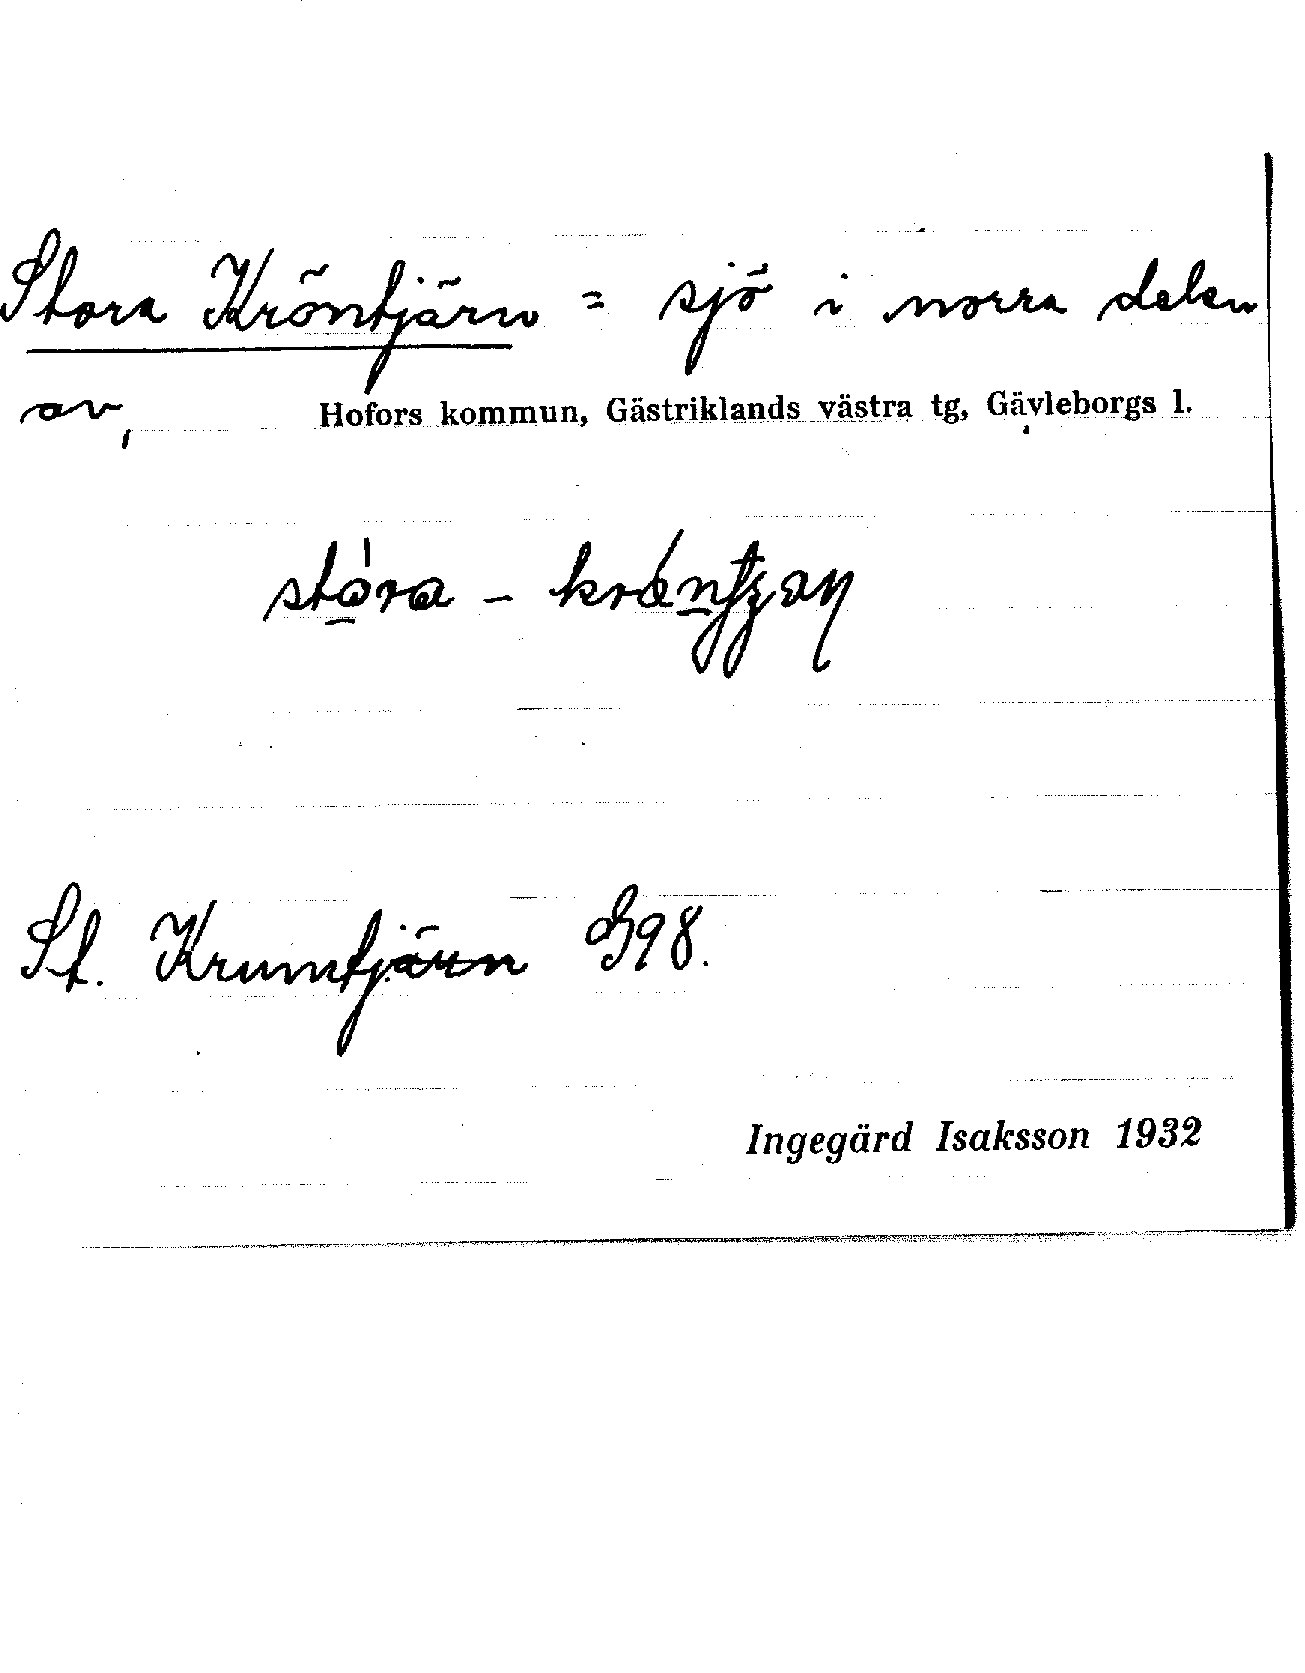 Stora Kröntjärn = sjö i norra delen
av, Hofors kommun, Gästriklands västra tg, Gävleborgs l.
stóra -
St. Krumtjärn G98.
Ingegärd Isaksson 1932